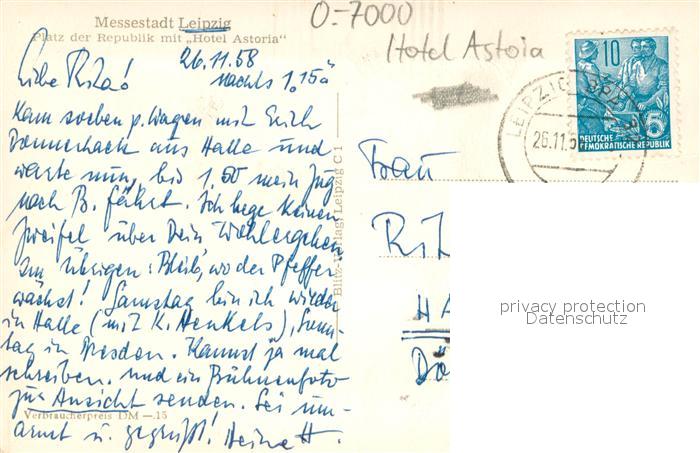 Messestadt Leipzig
Platz der Republik mit „Hotel Astoria"
O.-7000
Hotel Astoria
Liebe Rita!
26.11.58
nachts 1,15°
Kam soeben p. Wagen mit Erich
Donnerhack aus Halle und
warte nun, bis 1.50 mein Zug
nach B. fährt. Ich hege keinen
Zweifel über Dein Wohlergehen.
Im Übrigen: Bleib, wo der Pfeffer
wächst! Samstag bin ich wieder
in Halle (mit K. Henkels), Sonn-
tag in Dresden. Kannst ja mal
schreiben. und ein Bühnenfoto
zur Ansicht senden. Sei um-
armt u. gegrüßt! Heinz H.
Verbraucherpreis DM —.15
Blitz-Verlag, Leipzig C 1
LEIPZIG
26.11.5
10
5
DEUTSCHE
DEMOKRATISCHE REPUBLIK
Frau
Rit
HA
privacy protection
Datenschutz